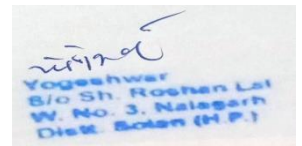 Yogeshwar
S/o Sh. Roshan Lal
W. No. 3, Nalagarh
Distt. Solan (H.P.)